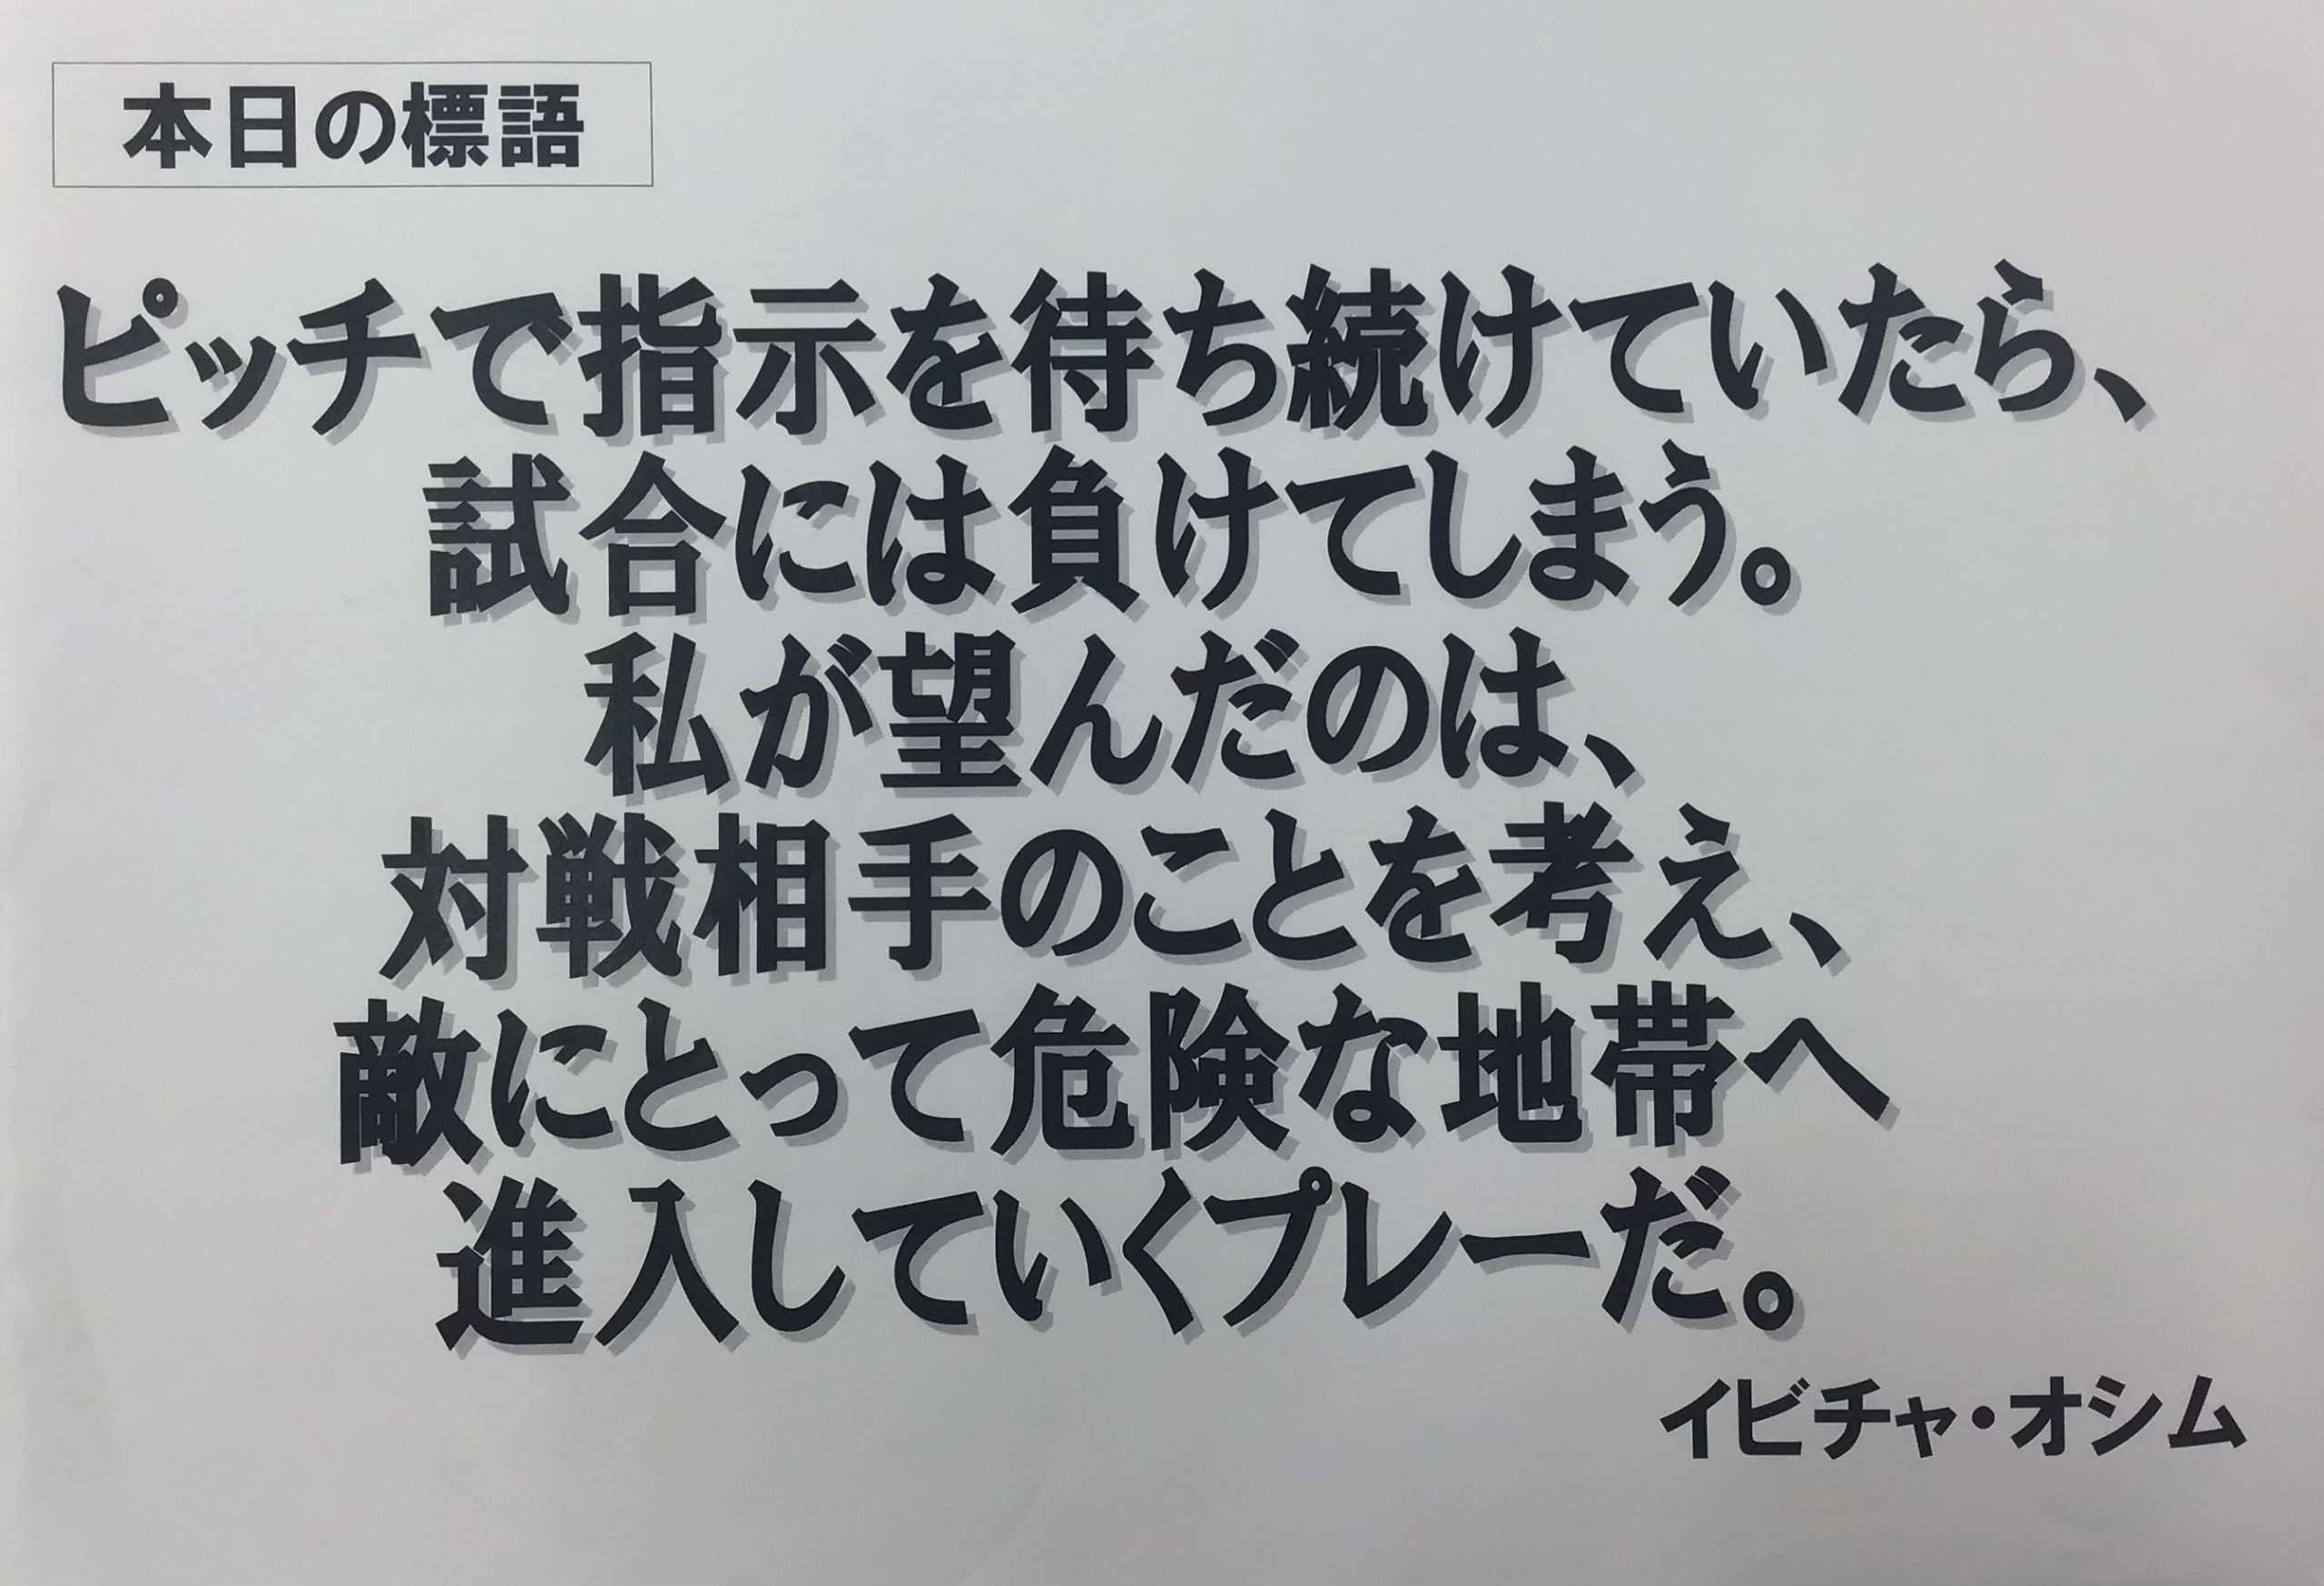 本日の標語
ピッチで指示を待ち続けていたら、
試合には負けてしまう。
私が望んだのは、
対戦相手のことを考え、
敵にとって危険な地帯へ
進入していくプレーだ。
イビチャ・オシム